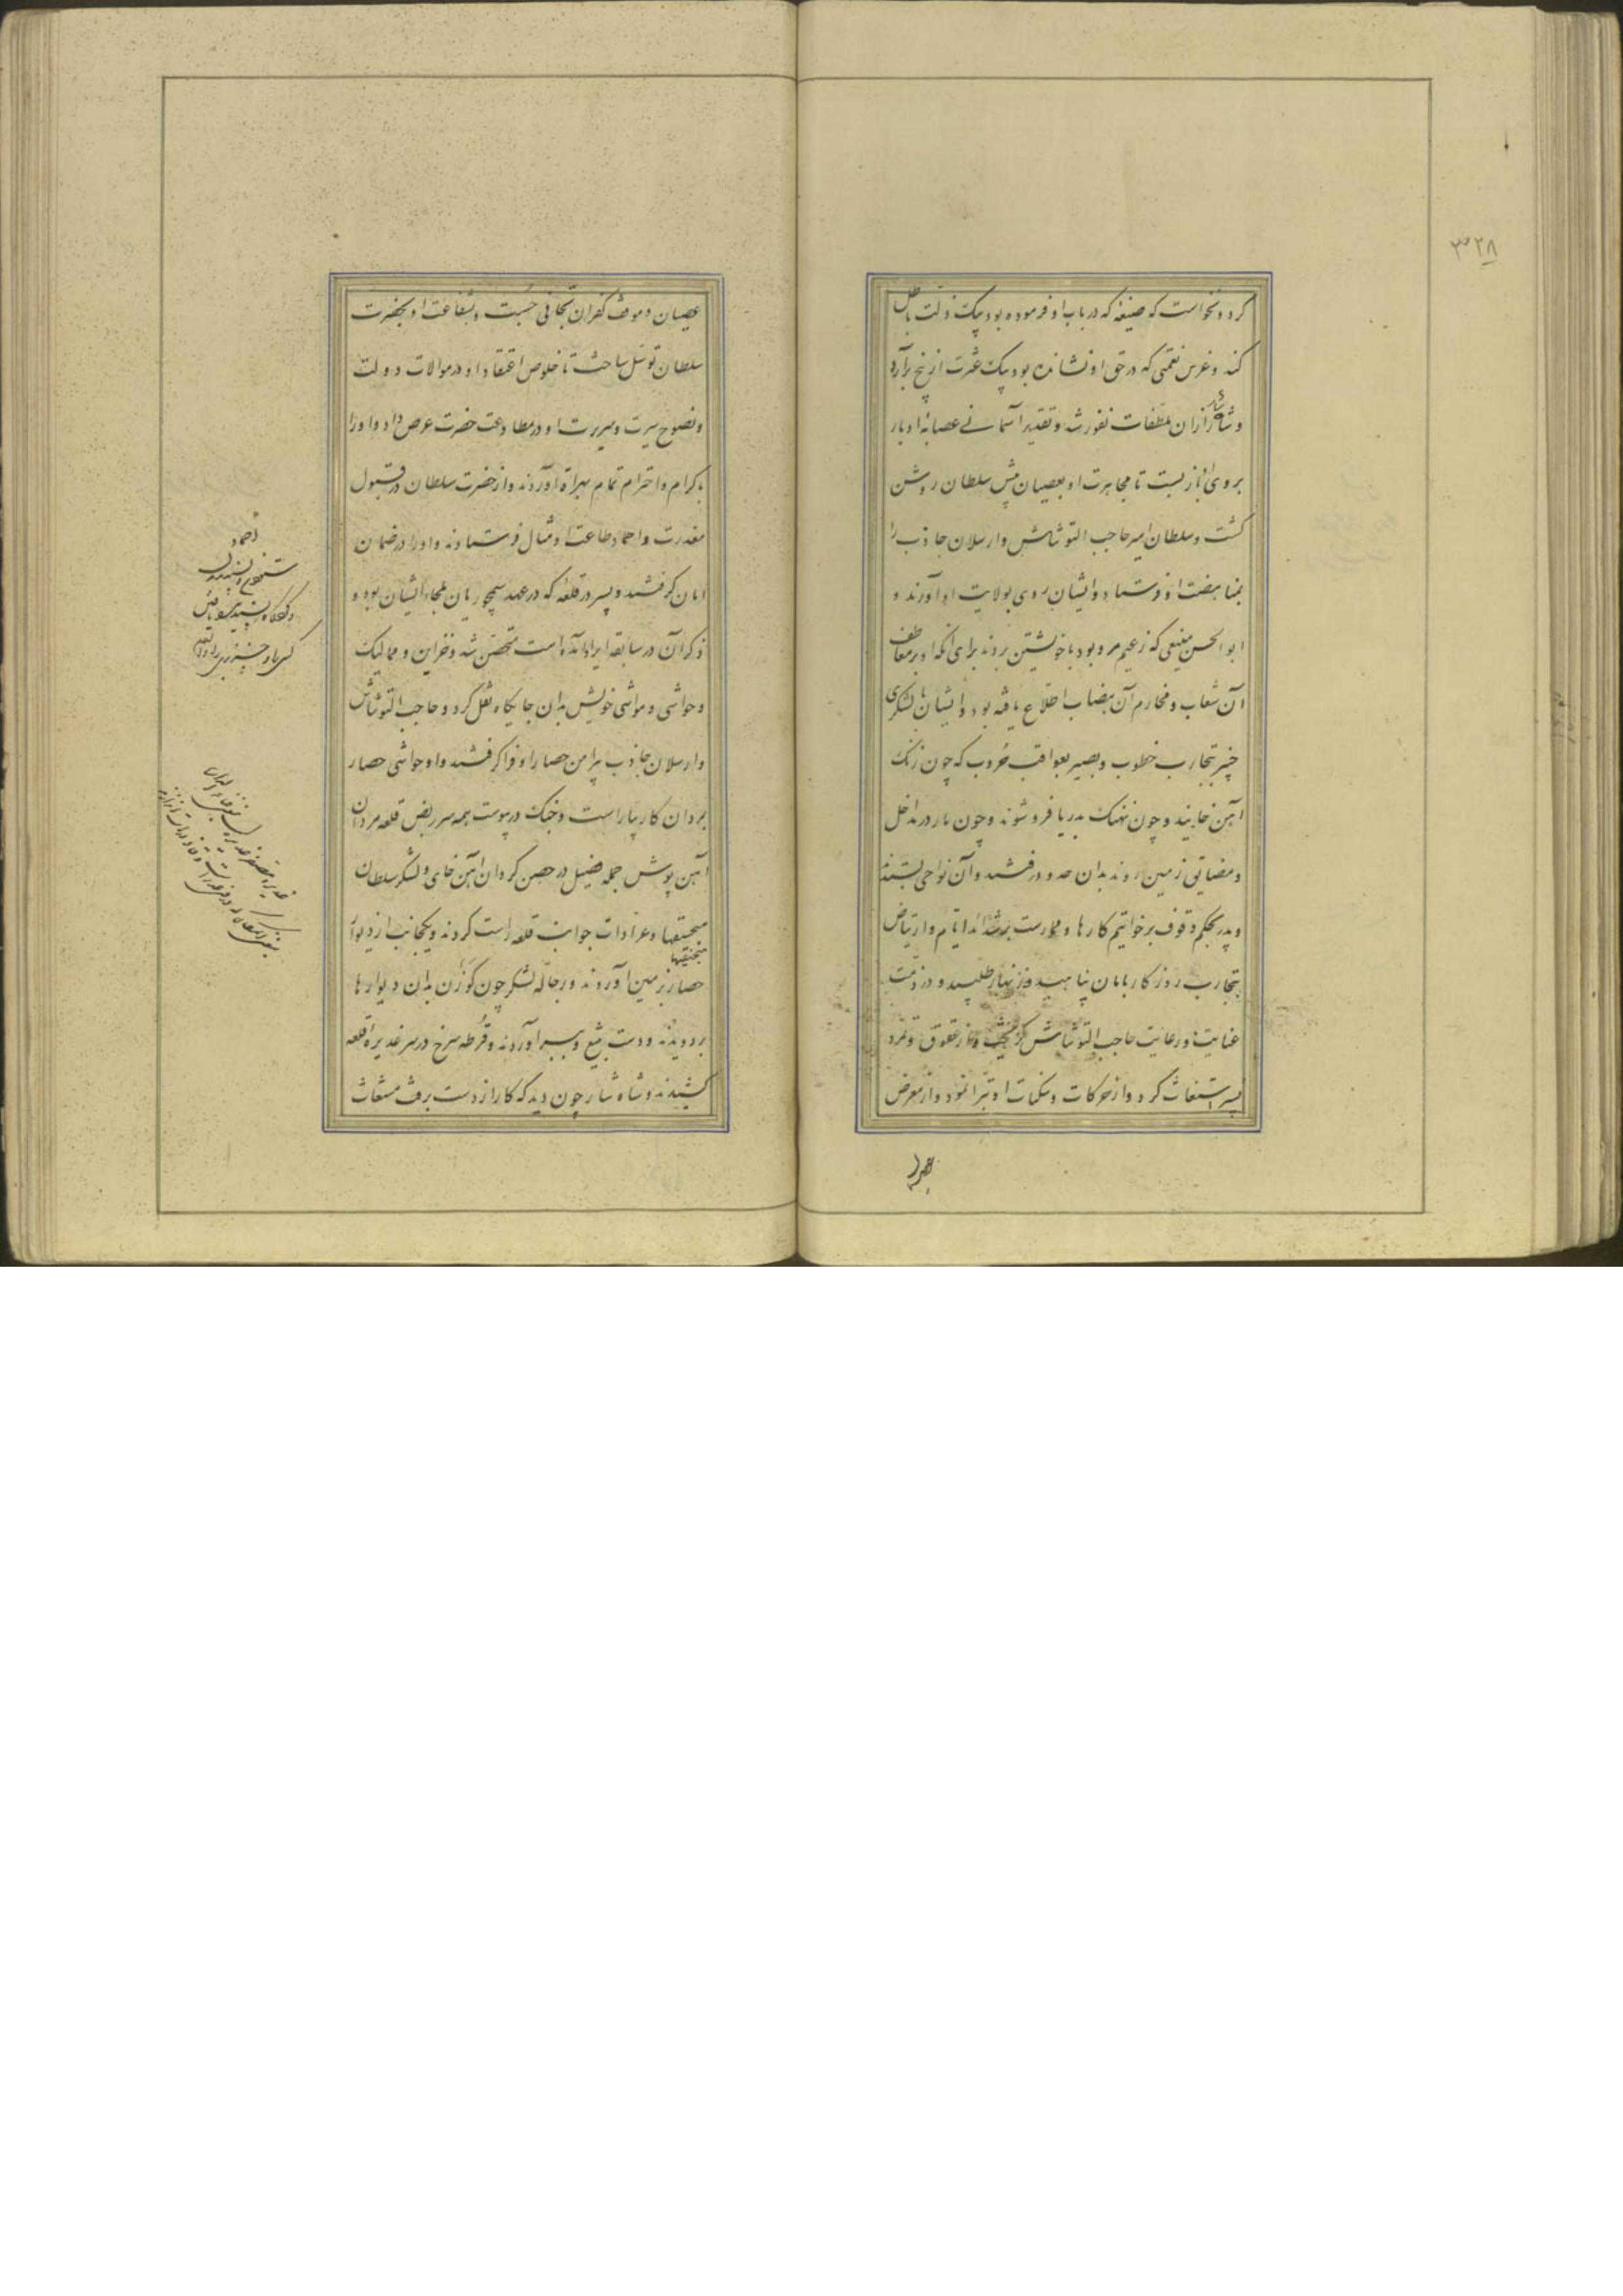 ۳۲۸
کرد و نخواست که صنیعه که در باب او فرموده بود بیک زلت باطل
کند و غرس نعمتی که در حق او نشانده بود بیک عثرت از بیخ برآرد
و شاه شار ازان ملطفات نفور شد و تقدیر آسمانی عصابه ادبار
بر روی او باز بست تا مجاهرت او بعصیان پیش سلطان روشن
گشت و سلطان امیر حاجب التونتاش و ارسلان جاذب را
بمناهضت او فرستاد و ایشان روی بولایت او آوردند و
ابو الحسن منیعی که زعیم مرو بود با خویشتن بردند برای آنکه او بر معاطف
آن شعاب و مخارم آن هضاب اطلاع یافته بود و ایشان با لشکری
خبیر بتجارب خطوب و بصیر بعواقب حروب که چون زنک
آهن خایند و چون نهنک بدریا فرو شوند و چون مار در مداخل
و مضایق زمین روند بدان حدود رفتند و آن نواحی بستدند
و پدر بحکم وقوف بر خواتیم کارها و ممارست شداید ایام و ارتیاض
بتجارب روزکار بامان پناهید و زنهار طلبید و در ذمت
عنایت و رعایت حاجب التونتاش کریخت و از عقوق و تمرد
پسر استغاث کرد و از حرکات و سکنات او تبرا نمود و از معرض
عصیان
عصیان و موقف کفران تجافی جست و بشفاعت او بحضرت
سلطان توسل ساخت تا خلوص اعتقاد او در موالات دولت
و نصوح سیرت و سریرت او در مطاوعت حضرت عرض داد و او را
باکرام و احترام تمام بهراة آوردند و از حضرت سلطان در قبول
معذرت و احماد طاعت او مثال فرستادند و او را در ضمان
امان گرفتند و پسر در قلعه که در عهد سیمجوریان ملجاء ایشان بود و
ذکر آن در سابقه ایراد آمده است متحصن شد و خزاین و ممالیک
و حواشی و مواشی خویش بدان جایکاه نقل کرد و حاجب التونتاش
و ارسلان جاذب پیرامن حصار او فرا گرفتند و او حواشی حصار
بمردان کار بیاراست و جنک در پیوست همه سر ربض قلعه مردان
آهن پوش جمله فصیل در حصن کردان آهن خای و لشکر سلطان
منجنیقها و عرادات جوانب قلعه راست کردند و یکجانب از دیوار
منجنیقها
حصار بر زمین آوردند و رجاله لشکر چون کوزن بدان دیوارها
بر دویدند و دست بتیغ و سپر آوردند و قرطه سرخ در سر غدیره قلعه
کشیدند و شاه شار چون دید که کار از دست برفت مستغاث
احماد